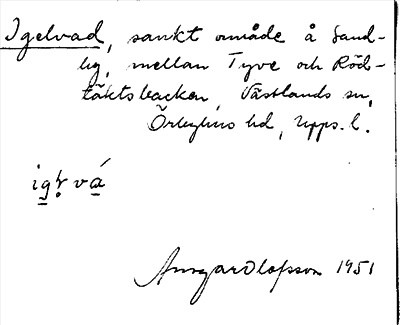 Igelvad, sankt område å Sand-
by, mellan Tyve och Röd-
täktsbacken, Västlands sn,
Örbyhus hd, Upps. l.
Ansgar Olofsson 1951